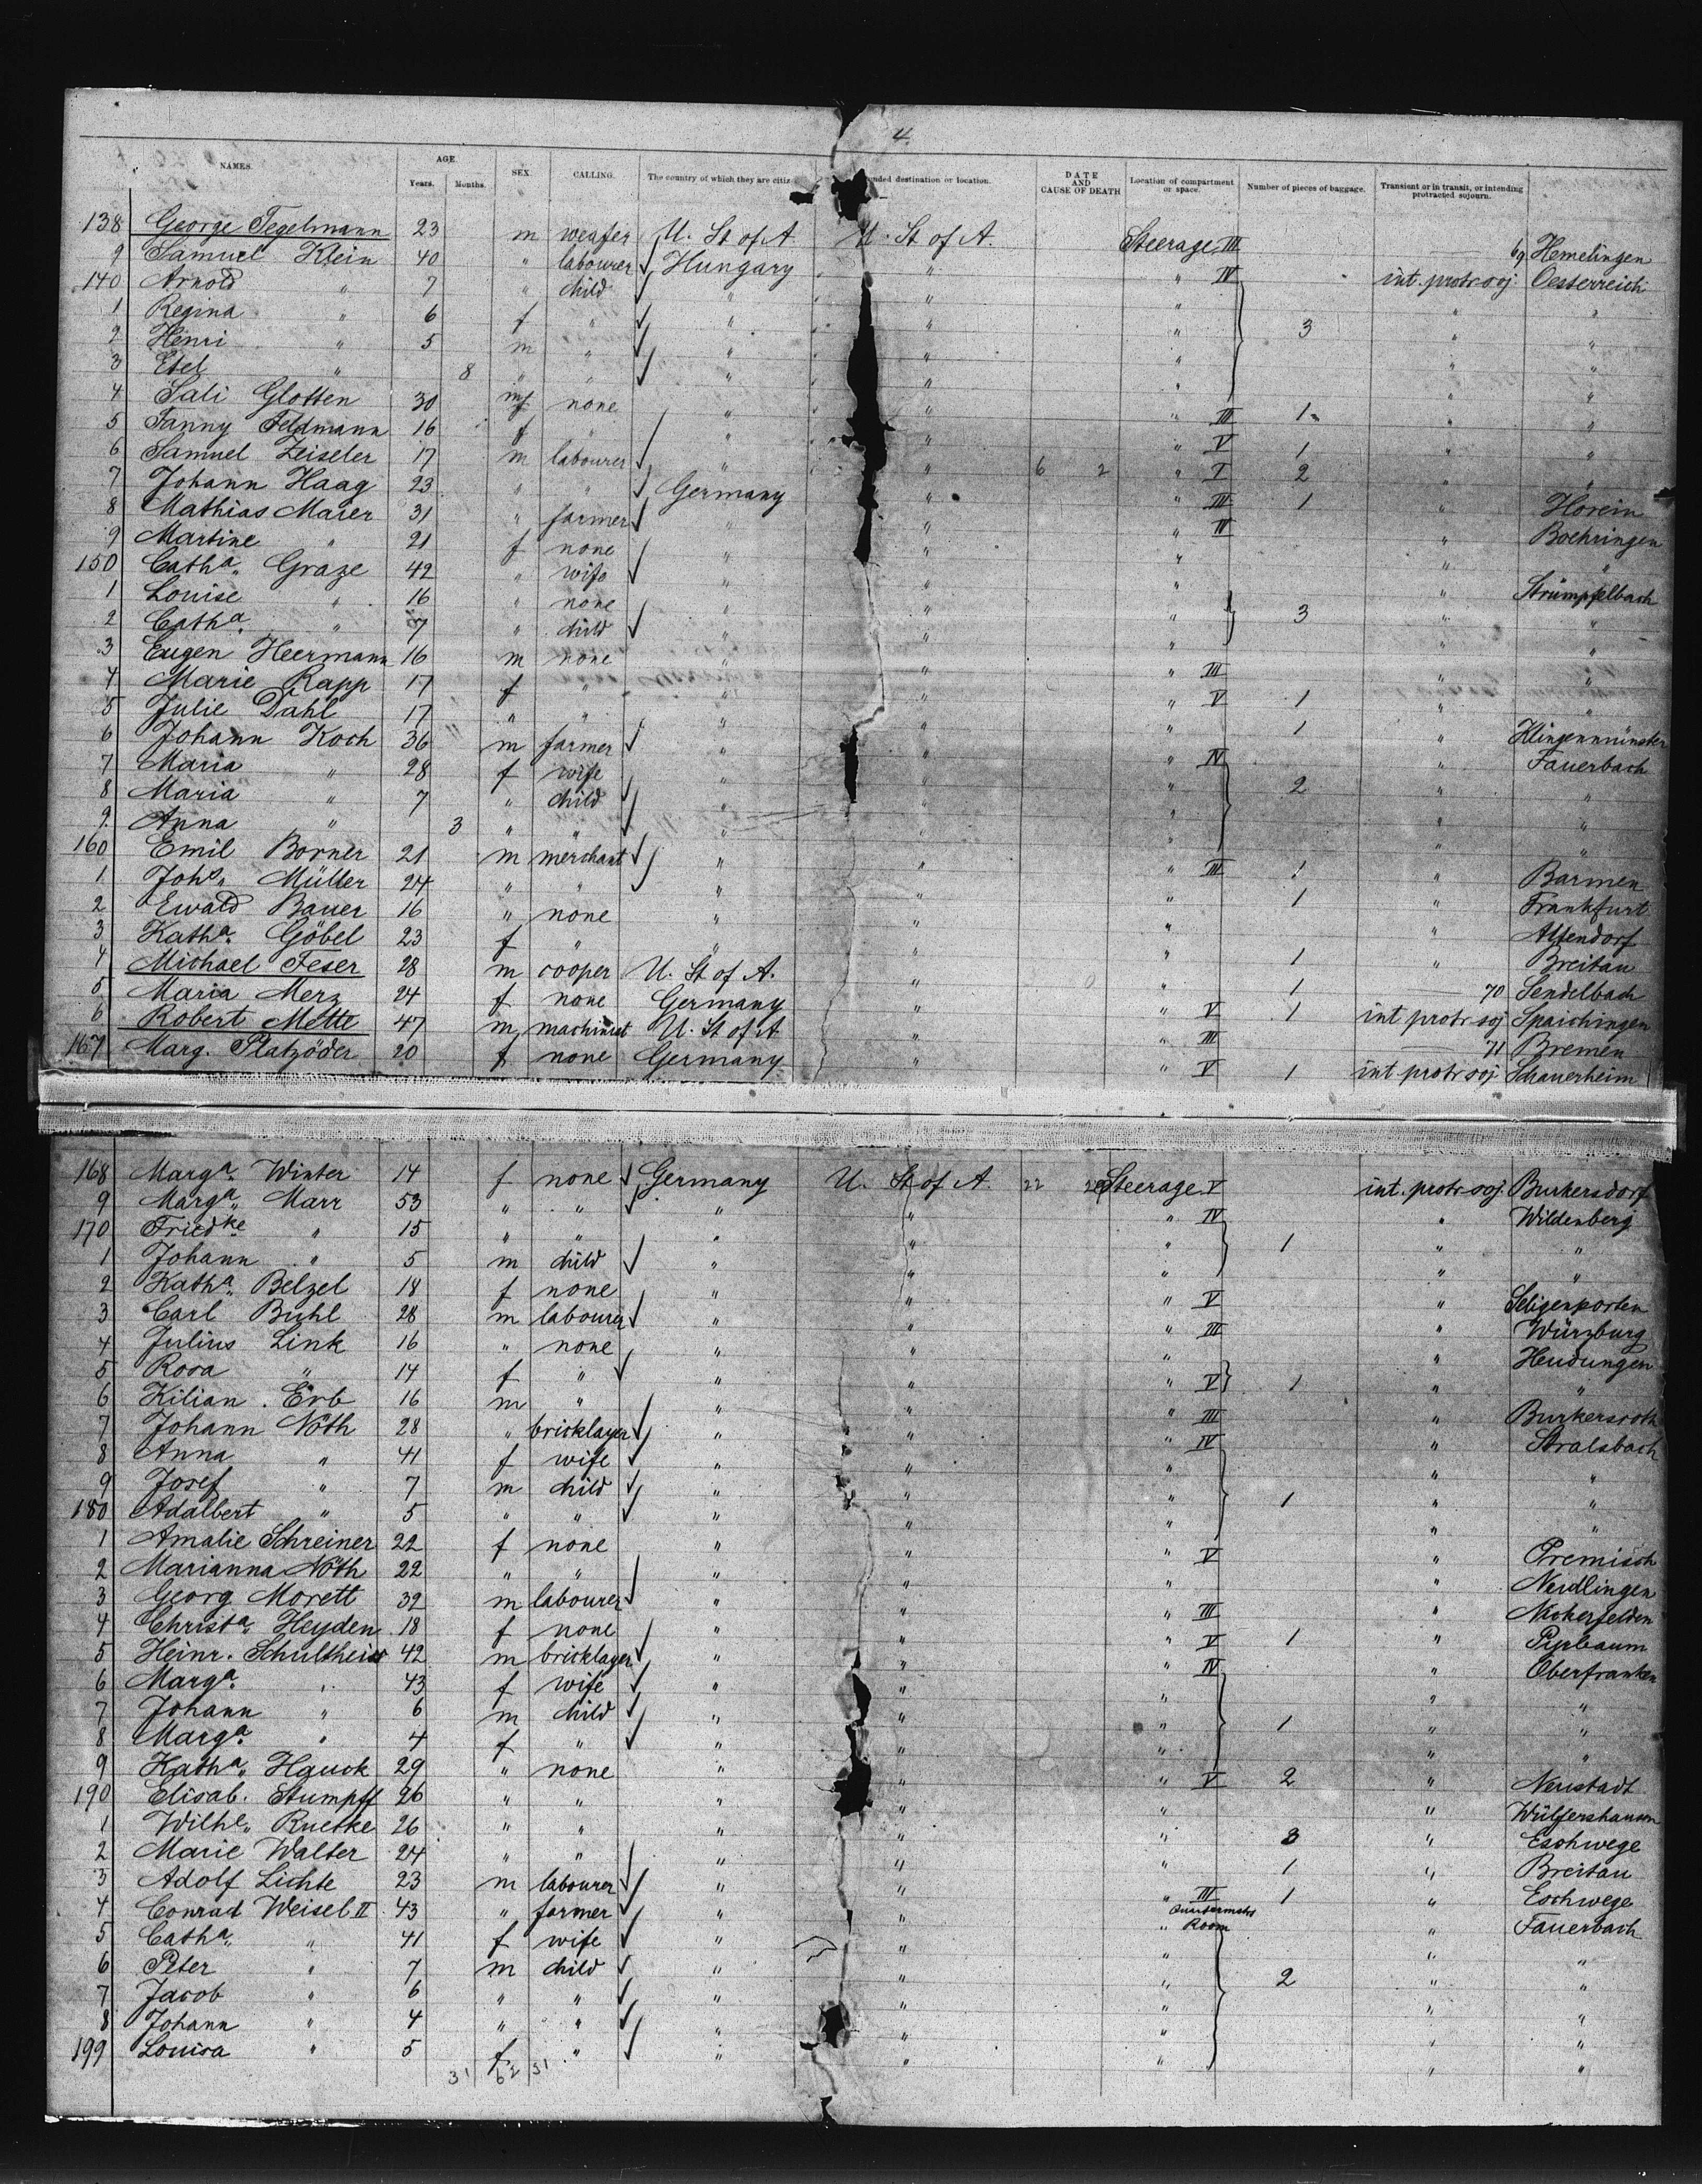 4.
NAMES. AGE. Years. Months. SEX. CALLING. The country of which they are citiz nded destination or location. DATE AND CAUSE OF DEATH Location of compartment or space. Number of pieces of baggage. Transient or in transit, or intending protracted sojourn.
138 George Tegelmann 23 m weafer U. St of A. U. St of A. Steerage III 69 Hemelingen
9 Samuel Klein 40 " labourer Hungary " " IV int. protr soj. Oesterreich
140 Arnold " 7 " child " " " " "
1 Regina " 6 f " " " " 3 " "
2 Henri " 5 m " " " " " "
3 Etel " 8 " " " " " " "
4 Sali Glotten 30 f none " " " III 1 " "
5 Fanny Feldmann 16 f " " " " V 1 " "
6 Samuel Zeiseler 17 m labourer " " 6 2 " I 2 " "
7 Johann Haag 23 " " Germany " " III 1 " Horein
8 Mathias Maier 31 " farmer " " " II " Boehringen
9 Martine " 21 f none " " " " "
150 Cath^a. Graze 42 " wife " " " " Strümpfelbach
1 Louise " 16 " none " " " 3 " "
2 Cath^a. " 7 " child " " " " "
3 Eugen Heermann 16 m none " " " III " "
4 Marie Rapp 17 f " " " " V 1 " "
5 Julie Dahl 17 " " " " 1 " Klingenmünster
6 Johann Koch 36 m farmer " " " IV " Fauerbach
7 Maria " 28 f wife " " " 2 " "
8 Maria " 7 " child " " " " "
9 Anna " 3 " " " " " " "
160 Emil Borner 21 m merchant " " " III 1 " Barmen
1 Joh^s. Müller 24 " " " " " 1 " Frankfurt
2 Ewald Bauer 16 " none " " " " Altendorf
3 Kath^a. Göbel 23 f " " " " 1 " Breitau
4 Michael Feser 28 m cooper U. St of A. " " 1 70 Sendelbach
5 Maria Merz 24 f none Germany " " V 1 int protr soj Spaichingen
6 Robert Mette 47 m machinist U. St of A " " III 71 Bremen
167 Marg. Platzöder 20 f none Germany " " V 1 int protr soj Schauerheim
168 Marg^a. Winter 14 f none Germany U. St of A. 22 Steerage V int. protr soj. Burkersdorf
9 Marg^a. Marr 53 " " " " " IV " Wildenberg
170 Fried^ke " 15 " " " " " 1 " "
1 Johann " 5 m child " " " " "
2 Kath^a. Belzel 18 f none " " " V " Seligenporten
3 Carl Buhl 28 m labourer " " " III " Würzburg
4 Julius Link 16 " none " " " " Heudungen
5 Rosa " 14 f " " " " V 1 " "
6 Kilian Erb 16 m " " " " III " Burkersroth
7 Johann Nöth 28 " bricklayer " " " IV " Stralsbach
8 Anna " 41 f wife " " " " "
9 Josef " 7 m child " " " 1 " "
180 Adalbert " 5 " " " " " " "
1 Amalie Schreiner 22 f none " " " V " Premisch
2 Marianna Nöth 22 " " " " " " Neidlingen
3 Georg Morett 32 m labourer " " " III " Nickerfelden
4 Christ^a. Heyden 18 f none " " " V 1 " Pyrbaum
5 Heinr. Schultheiss 42 m bricklayer " " " IV " Oberfranken
6 Marg^a. " 43 f wife " " " " "
7 Johann " 6 m child " " " 1 " "
8 Marg^a. " 4 f " " " " " "
9 Kath^a. Hauck 29 " none " " " V 2 " Neustadt
190 Elisab. Stumpff 26 " " " " " " Wülfershausen
1 Wilh^e. Ruetke 26 " " " " " 3 " Eschwege
2 Marie Walter 24 " " " " " 1 " Breitau
3 Adolf Lichte 23 m labourer " " " III 1 " Eschwege
4 Conrad Weisel II 43 " farmer " " " Room " Fauerbach
5 Cath^a. " 41 f wife " " " " "
6 Peter " 7 m child " " " 2 " "
7 Jacob " 6 " " " " " " "
8 Johann " 4 " " " " " " "
199 Louisa " 5 f " " " " " "
31 62 31